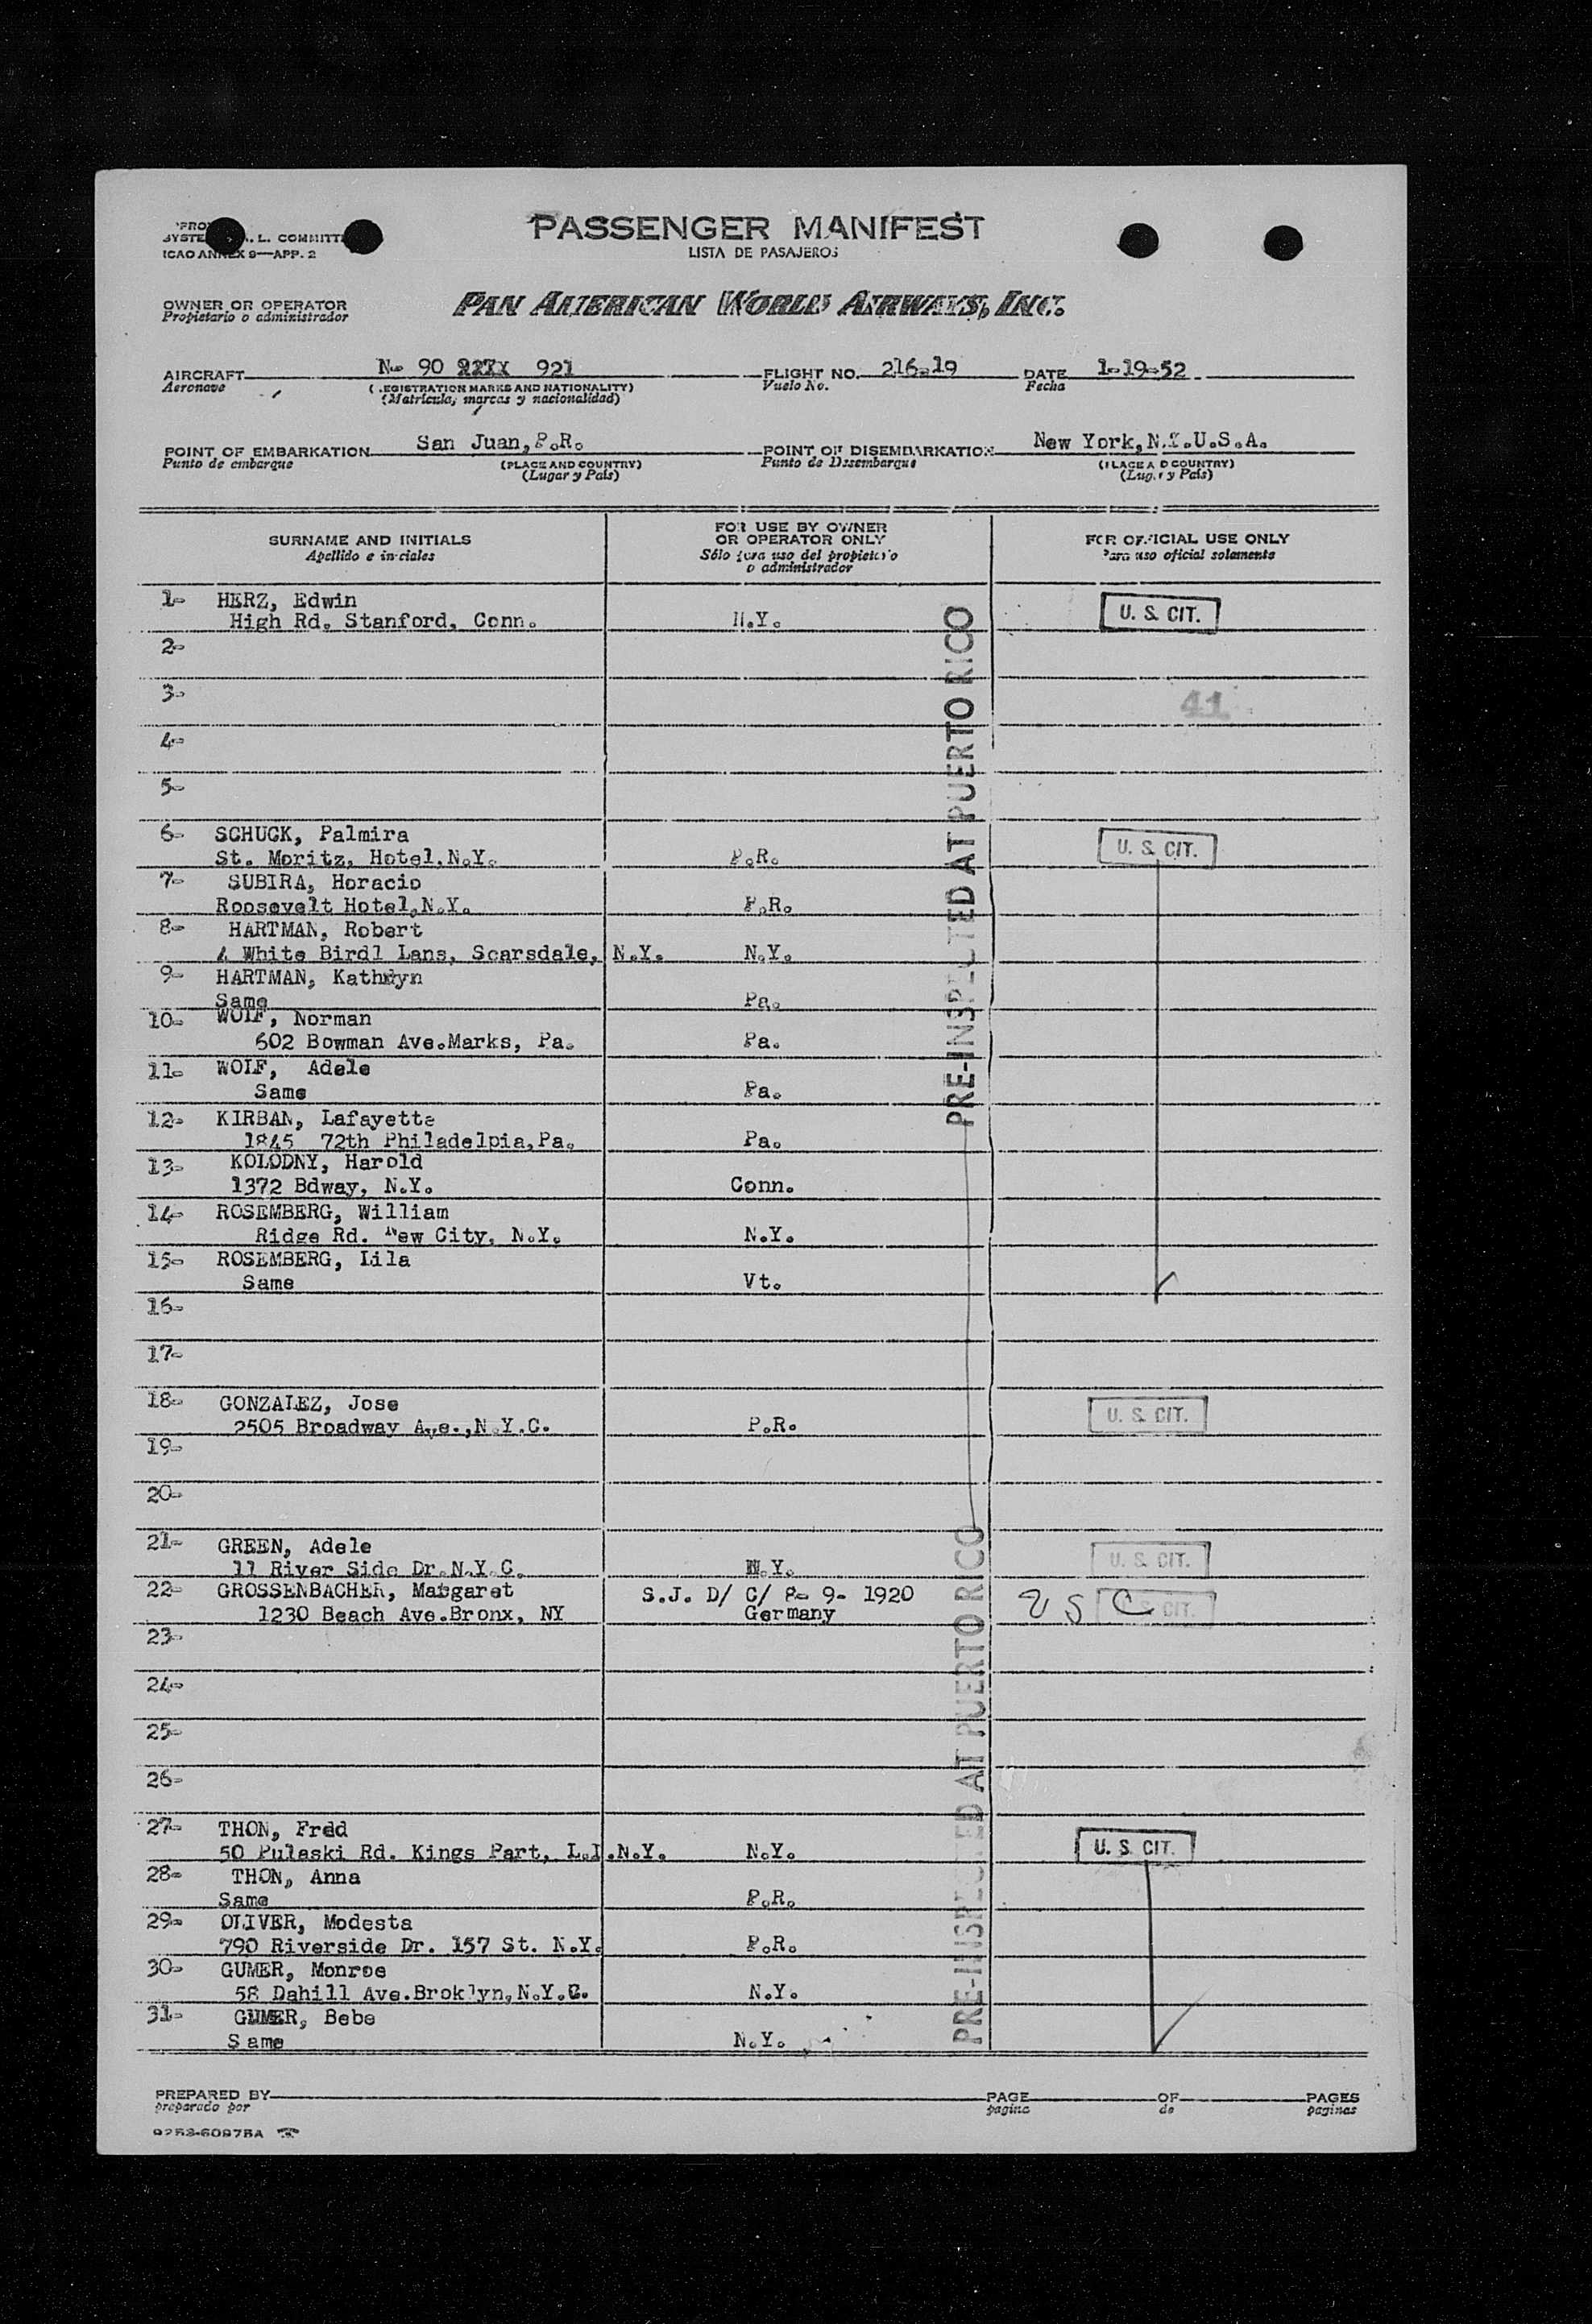 PASSENGER MANIFEST
LISTA DE PASAJEROS
L. COMMITT
ICAO ANNEX 9—APP. 2
OWNER OR OPERATOR
Propietario o administrador
PAN AMERICAN WORLD AIRWAYS, INC.
AIRCRAFT N- 90 921 FLIGHT NO. 216-19 DATE 1-19-52
Aeronave (REGISTRATION MARKS AND NATIONALITY) Vuelo No. Fecha
(Matrícula, marcas y nacionalidad)
POINT OF EMBARKATION San Juan, P.R. POINT OF DISEMBARKATION New York, N.Y.U.S.A.
Punto de embarque (PLACE AND COUNTRY) Punto de Desembarque (PLACE AND COUNTRY)
(Lugar y País) (Lugar y País)
SURNAME AND INITIALS FOR USE BY OWNER OR OPERATOR ONLY FOR OFFICIAL USE ONLY
Apellido e iniciales Sólo para uso del propietario o administrador Para uso oficial solamente
1- HERZ, Edwin
High Rd. Stanford, Conn. N.Y. U. S. CIT.
2-
3- 41
4-
5-
6- SCHUCK, Palmira
St. Moritz, Hotel, N.Y. P.R. U. S. CIT.
7- SUBIRA, Horacio
Roosevelt Hotel, N.Y. P.R.
8- HARTMAN, Robert
4 White Birdl Lans, Scarsdale, N.Y. N.Y.
9- HARTMAN, Kathryn
Same Pa.
10- WOLF, Norman
602 Bowman Ave.Marks, Pa. Pa.
11- WOLF, Adele
Same Pa.
12- KIRBAN, Lafayette
1845 72th Philadelpia, Pa. Pa.
13- KOLODNY, Harold
1372 Bdway, N.Y. Conn.
14- ROSEMBERG, William
Ridge Rd. New City, N.Y. N.Y.
15- ROSEMBERG, Lila
Same Vt.
16-
17-
18- GONZALEZ, Jose
2505 Broadway Ave., N.Y.C. P.R. U. S. CIT.
19-
20-
21- GREEN, Adele
11 River Side Dr. N.Y.C. N.Y. U. S. CIT.
22- GROSSENBACHER, Margaret S.J. D/ C/ 8- 9- 1920
1230 Beach Ave.Bronx, NY Germany U S C U. S. CIT.
23-
24-
25-
26-
27- THON, Fred
50 Pulaski Rd. Kings Part, L.I.N.Y. N.Y. U. S. CIT.
28- THON, Anna
Same P.R.
29- OLIVER, Modesta
790 Riverside Dr. 157 St. N.Y. P.R.
30- GUMER, Monroe
58 Dahill Ave.Broklyn, N.Y.C. N.Y.
31- GUMER, Bebe
Same N.Y.
PRE-INSPECTED AT PUERTO RICO
PRE-INSPECTED AT PUERTO RICO
PREPARED BY PAGE OF PAGES
preparado por pagina de paginas